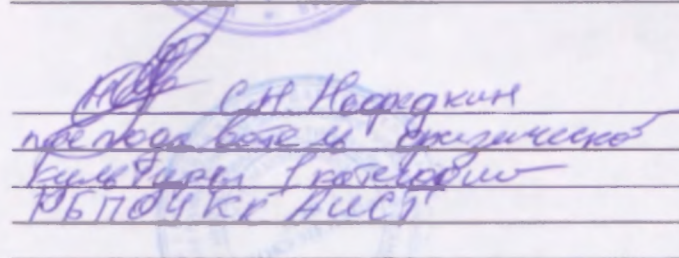 С.Н. Нефедкин
преподаватель физической
культуры 1 категории
КК АИСТ